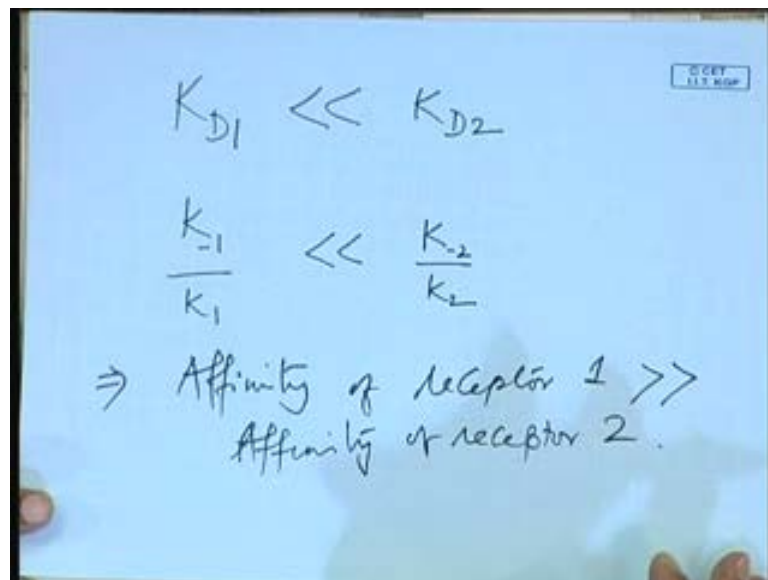 K_D1 << K_D2
© CET
I.I.T. KGP
K_-1 / K_1 << K_-2 / K_2
⇒ Affinity of receptor 1 >>
Affinity of receptor 2.